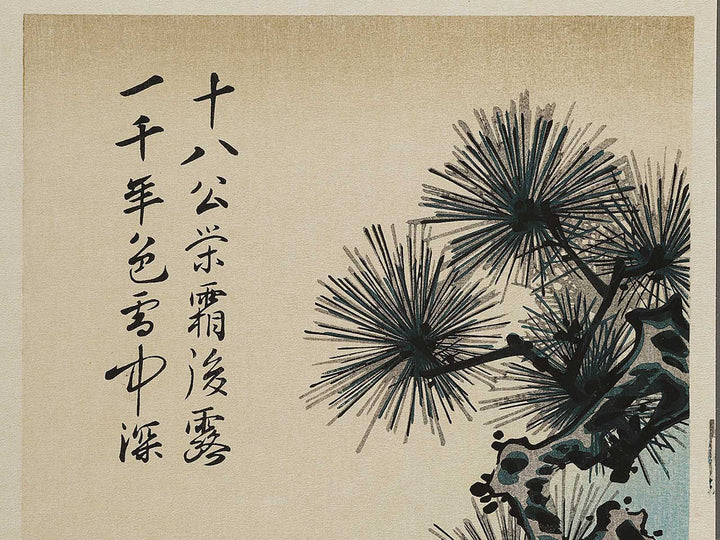 十八公栄霜後露
一千年色雪中深